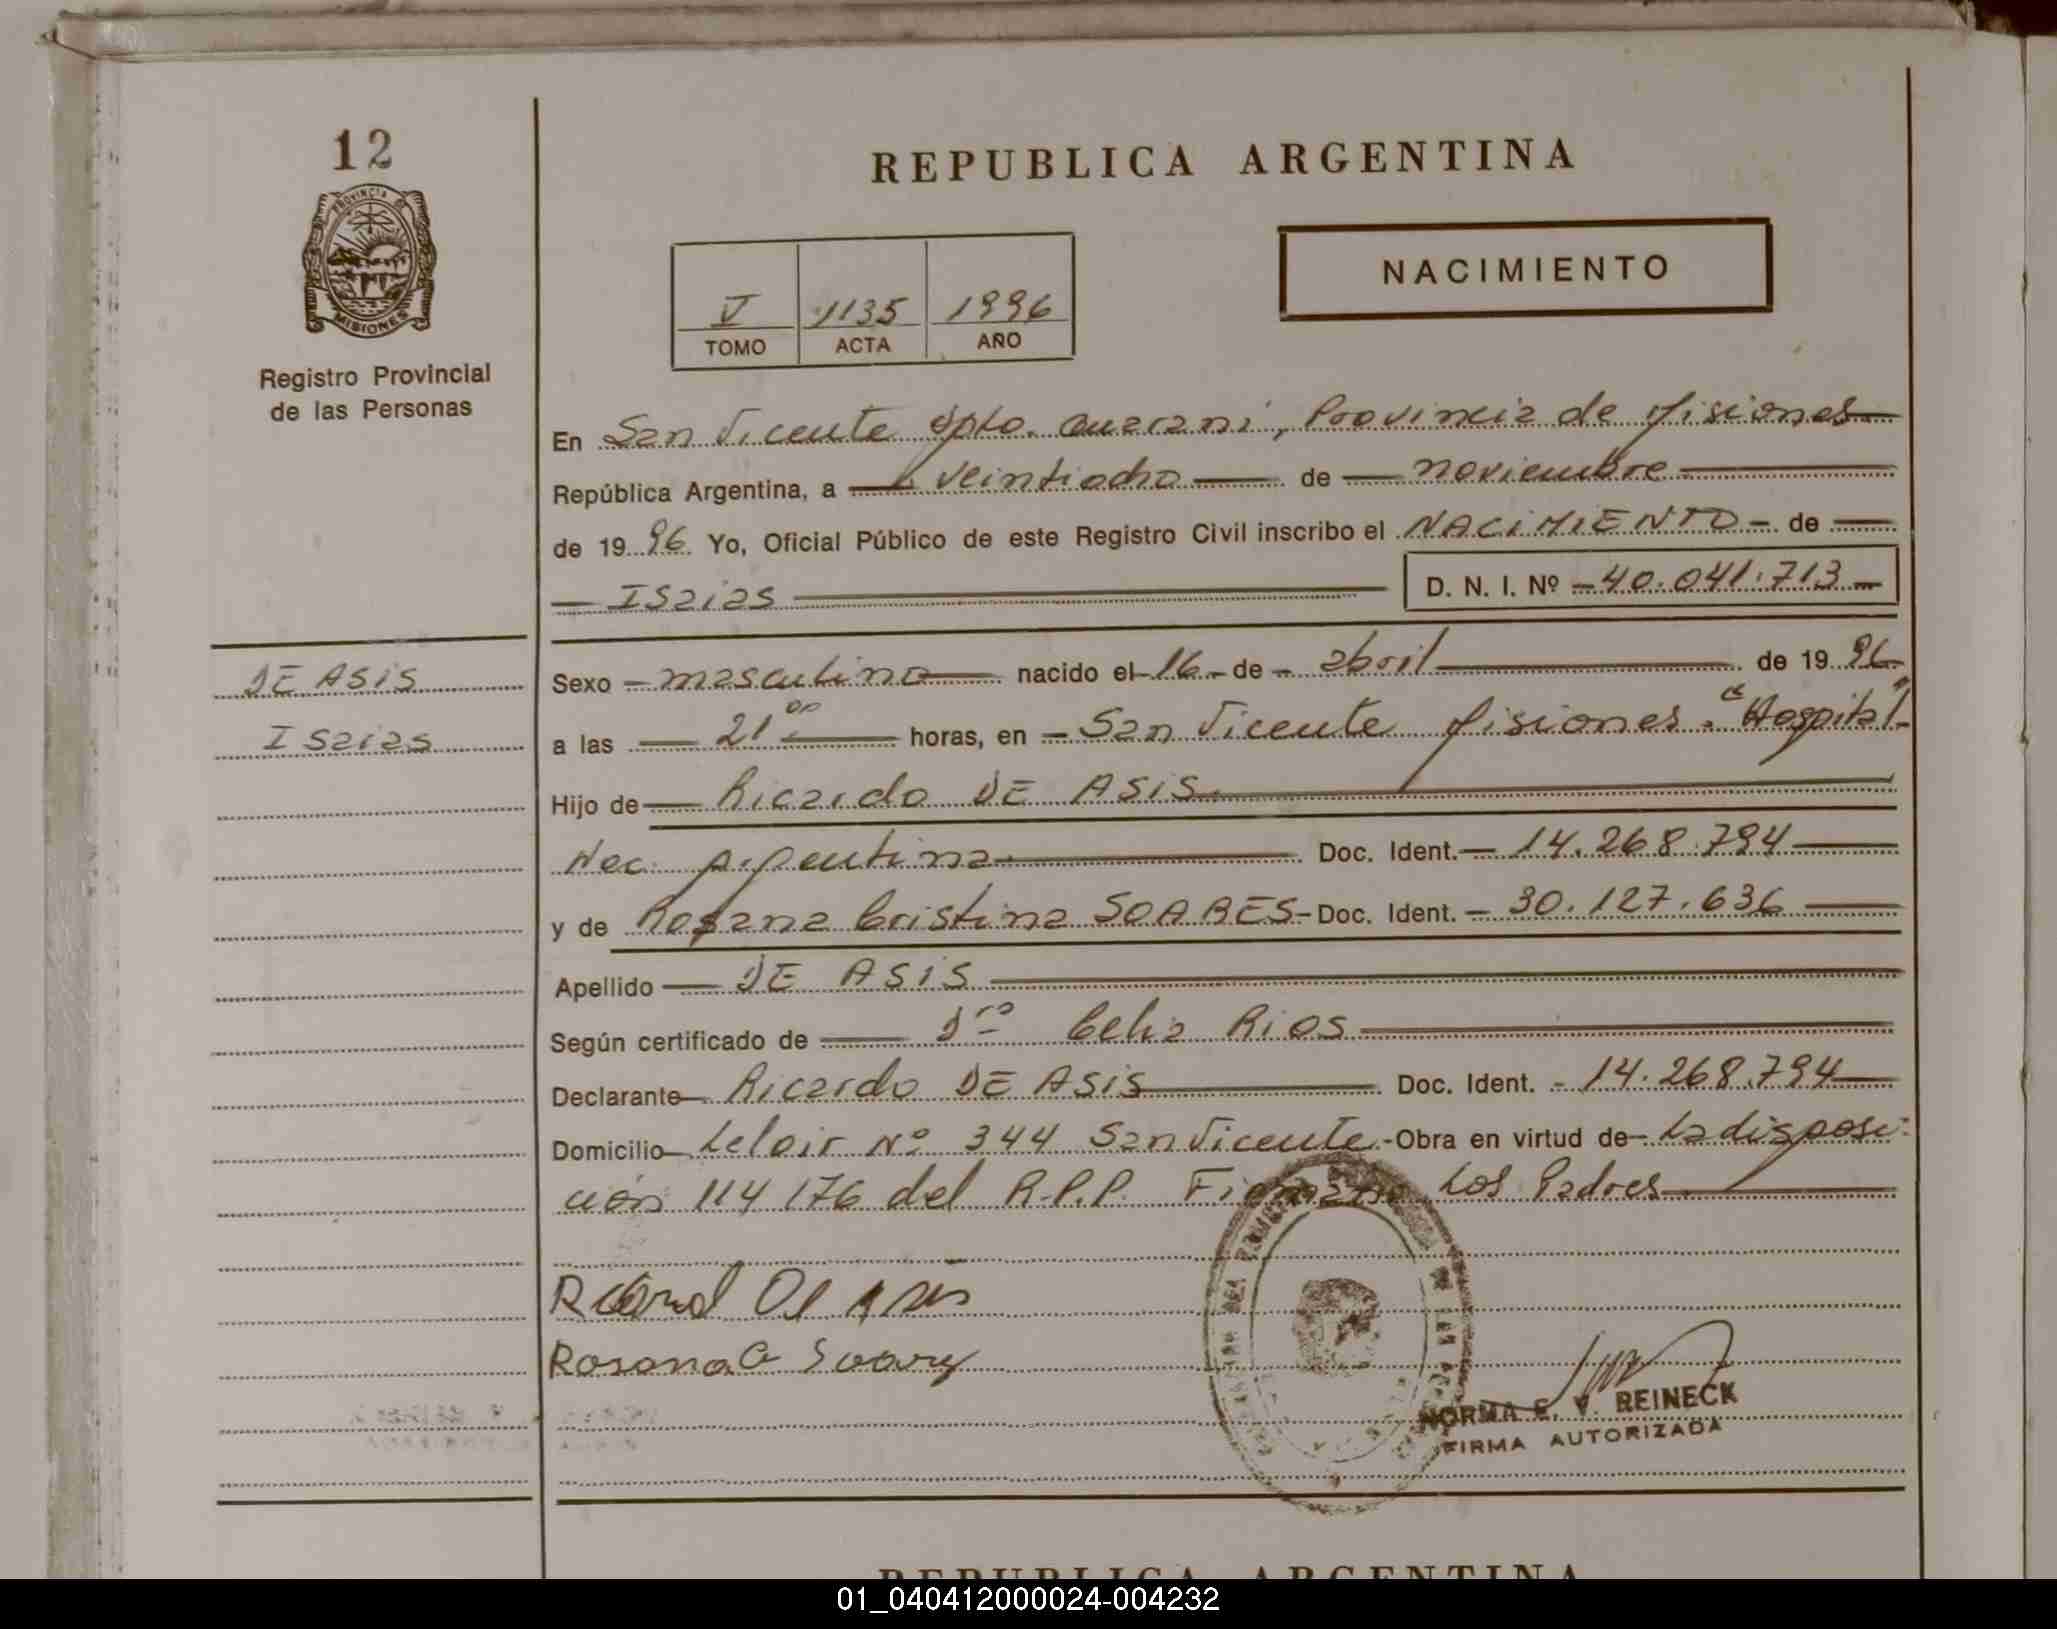 12
PROVINCIA DE
MISIONES
Registro Provincial
de las Personas
DE ASIS
Isaias
REPUBLICA ARGENTINA
NACIMIENTO
V 1135 1996
TOMO ACTA AÑO
En San Vicente Dpto. Guarani, Provincia de Misiones
República Argentina, a veintiocho de noviembre
de 1996 Yo, Oficial Público de este Registro Civil inscribo el NACIMIENTO de
Isaias D. N. I. Nº 40.041.713
Sexo masculino nacido el 16 de abril de 1996
a las 21 00 horas, en San Vicente Misiones. "Hospital"
Hijo de Ricardo DE ASIS
Nac. Argentina Doc. Ident. 14.268.794
y de Rosana Cristina SOARES Doc. Ident. 30.127.636
Apellido DE ASIS
Según certificado de Dra Celia Rios
Declarante Ricardo DE ASIS Doc. Ident. 14.268.794
Domicilio Leloir Nº 344 San Vicente Obra en virtud de La disposi
ción 114/76 del R.P.P. Firmaran Los Padres
Rosana C
NORMA E. V. REINECK
FIRMA AUTORIZADA
REPUBLICA ARGENTINA
01_040412000024-004232